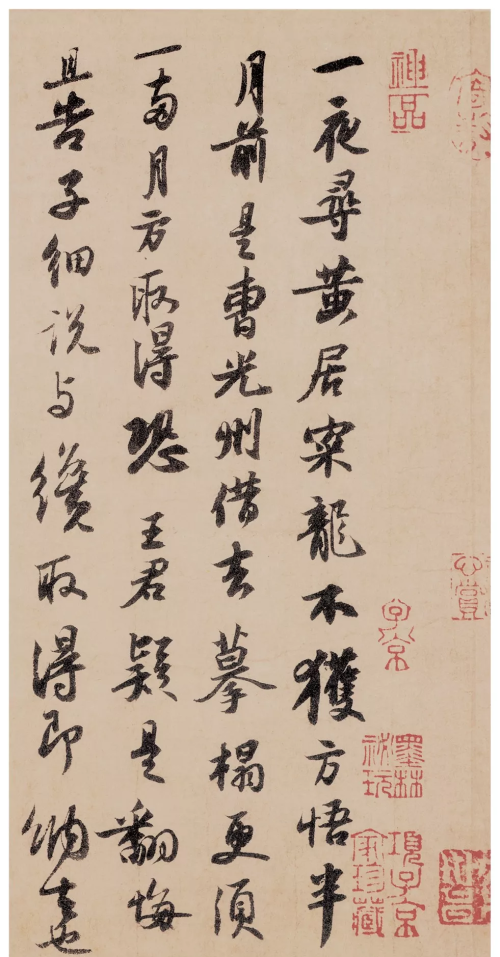 一夜尋黃居寀龍不獲方悟半
月前是曹光州借去摹榻更須
一兩月方取得恐王君疑是翻悔
且告子細說与纔取得即納去也
神品
子京
墨林
祕玩
項子京
家珍藏